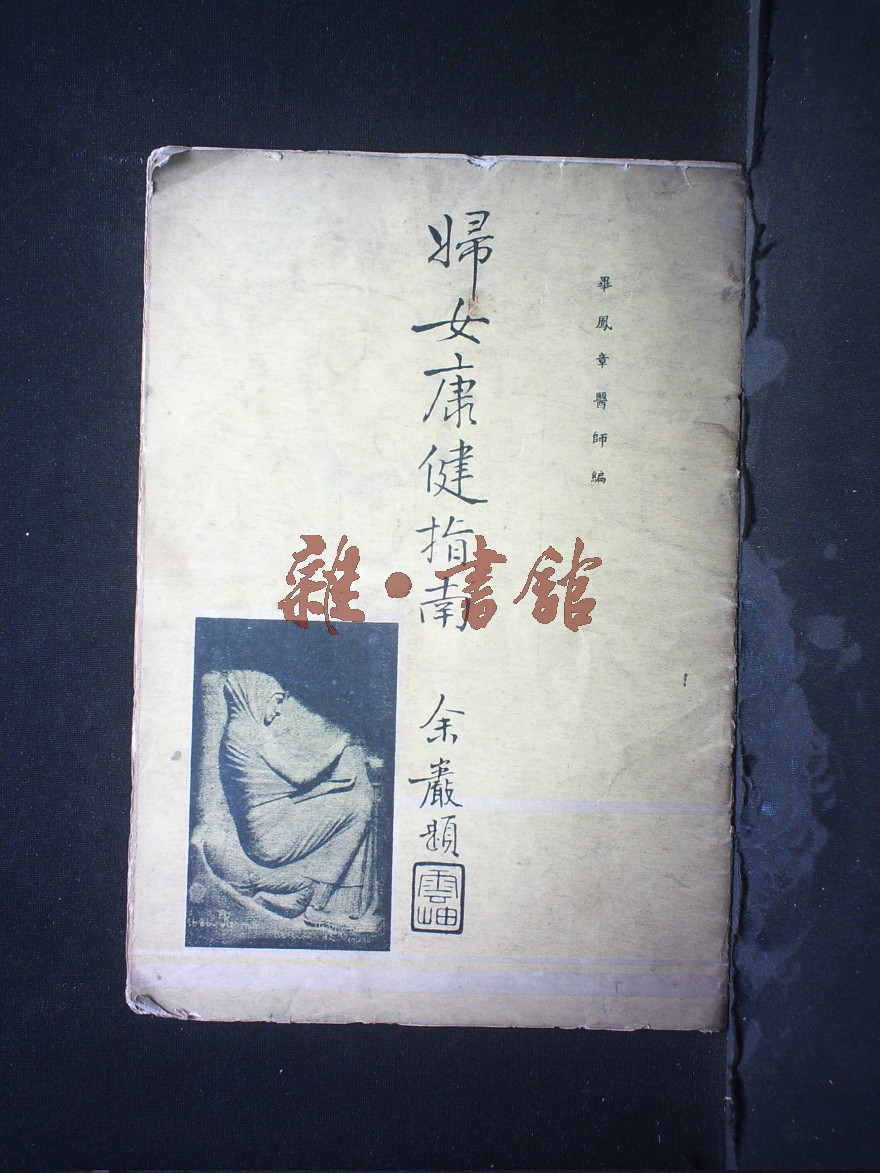 畢鳳章醫師編
婦女康健指南
余巖題
雲岫
雜·書館